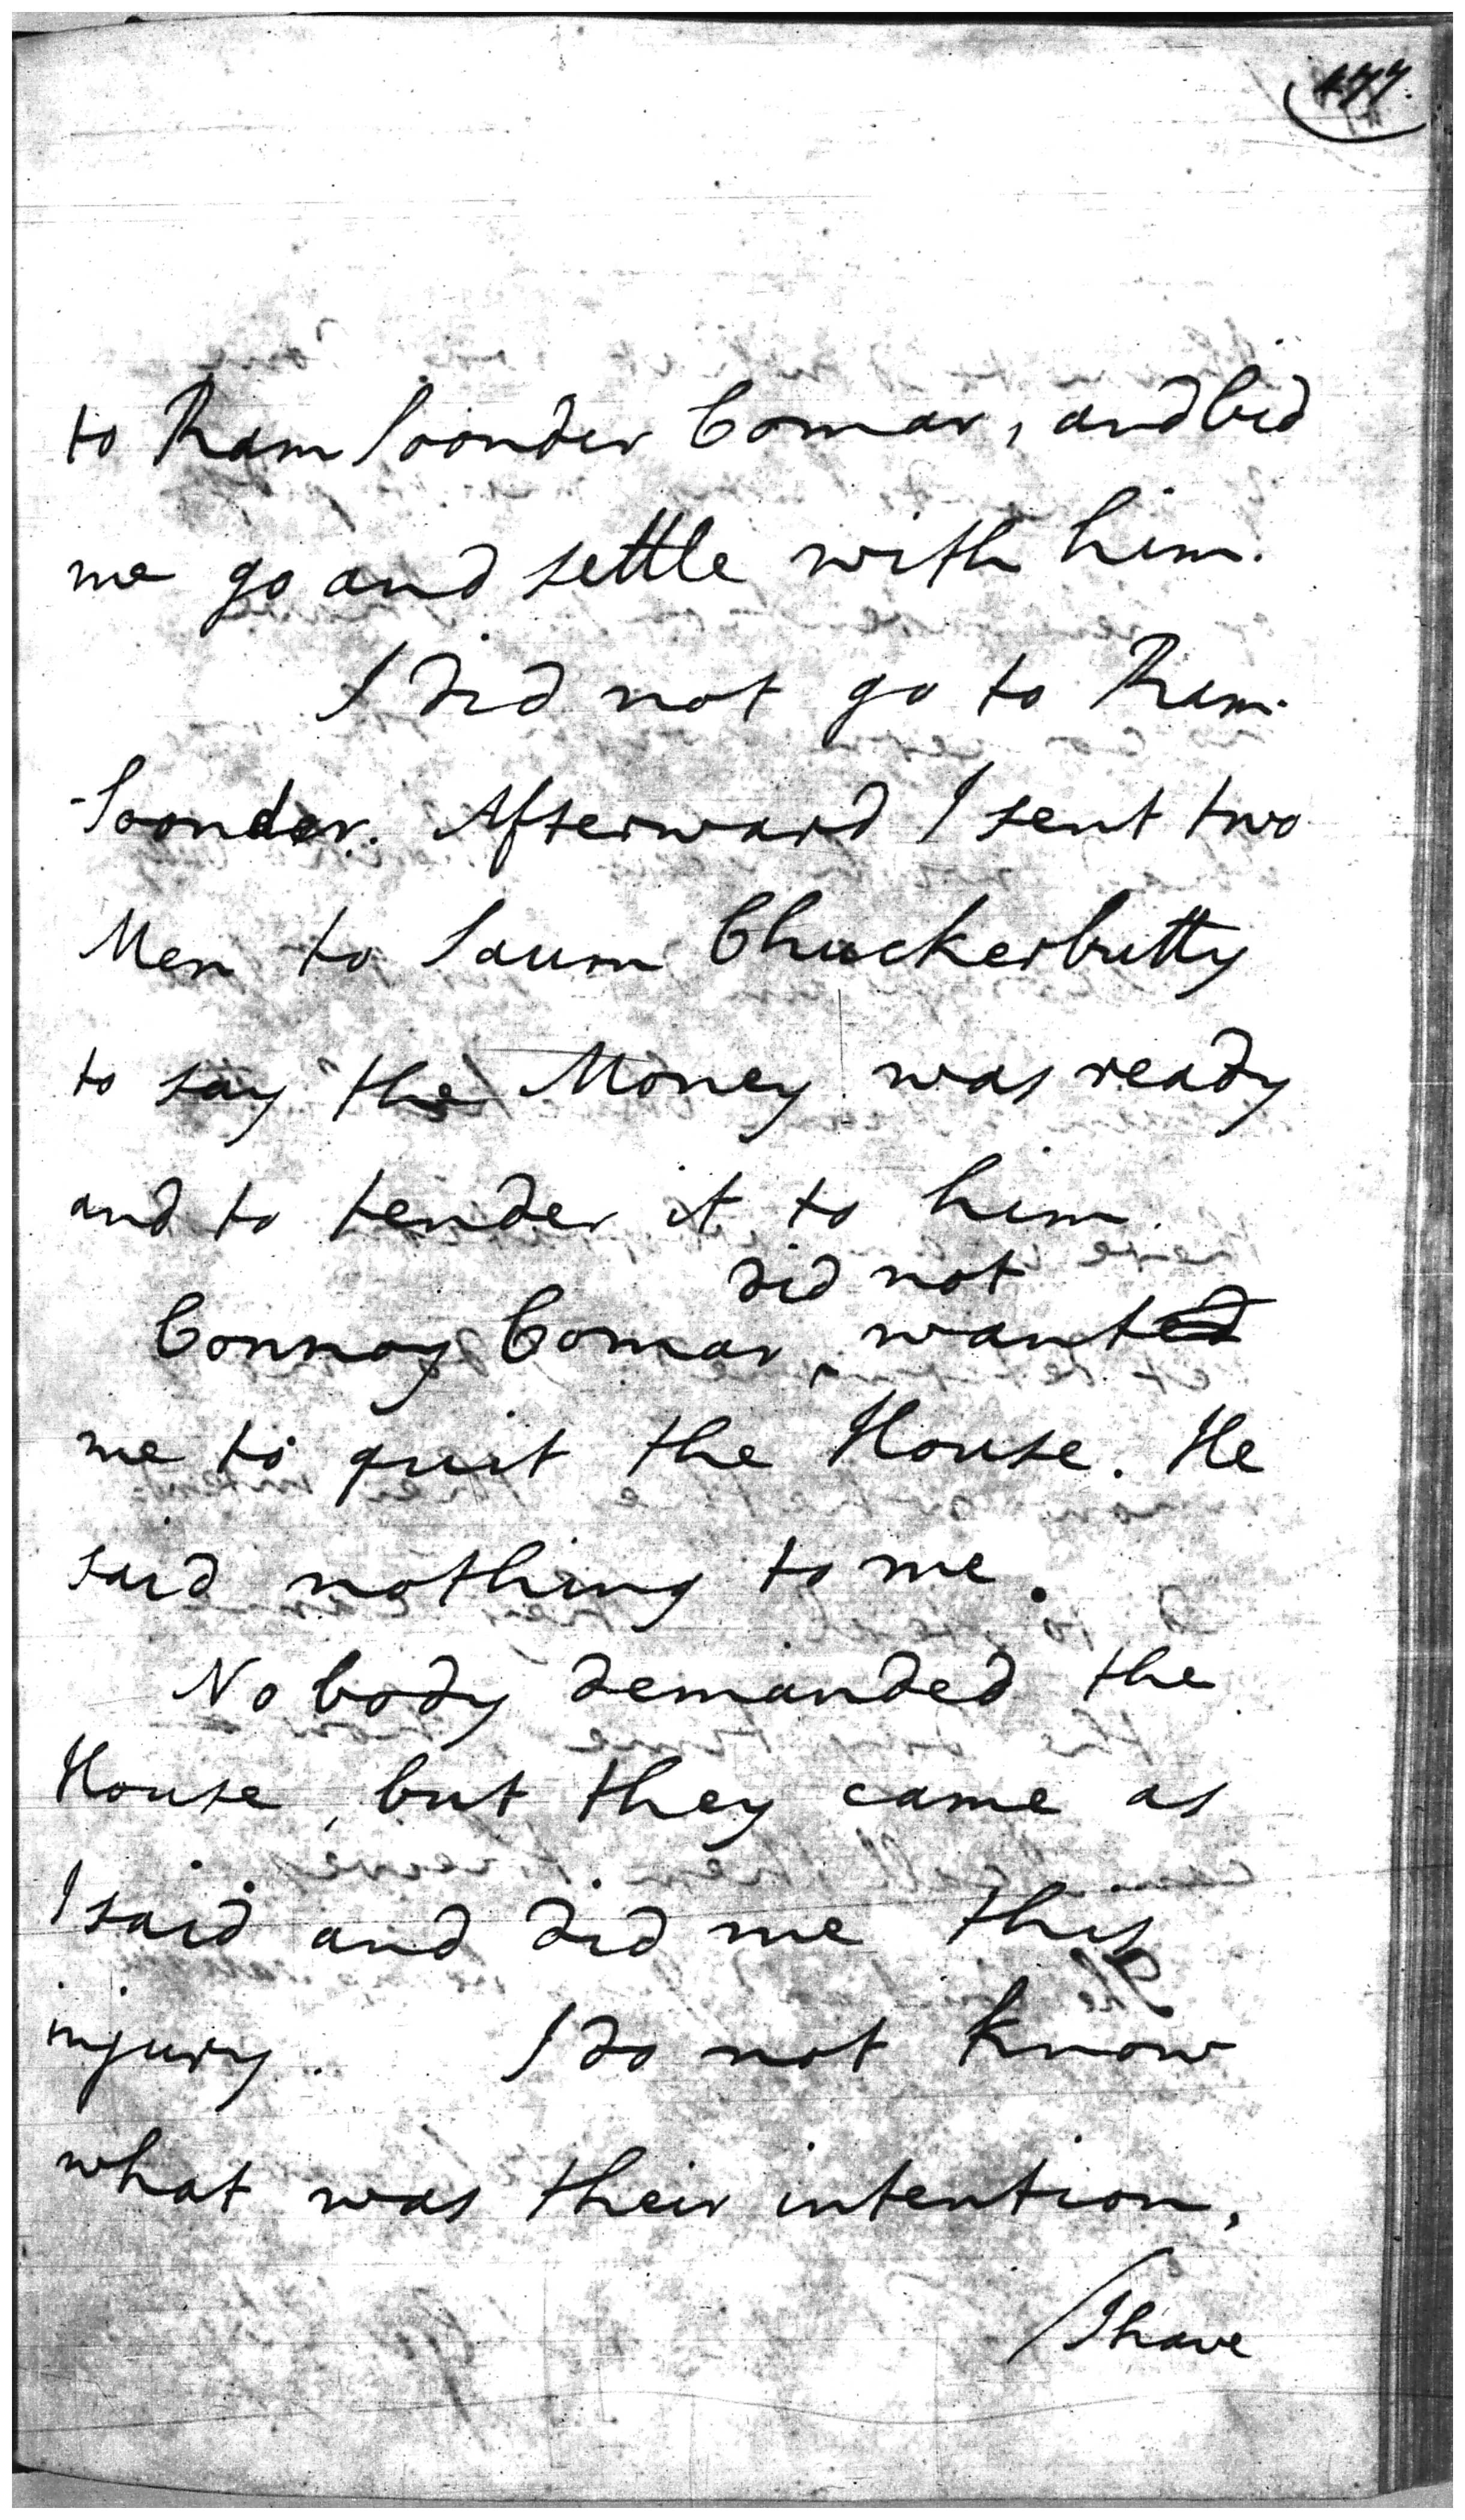 to Ram Soonder Comar, and bid
me go and settle with him.
I did not go to Ram-
-Soonder. Afterward I sent two
Men to Saum Chuckerbutty
to say the Money was ready
and to tender it to him.
did not
Connoy Comar, wanted
me to quit the House. He
said nothing to me.
No body demanded the
House, but they came as
I said and did me this
injury. I do not know
what was their intention.
/I have